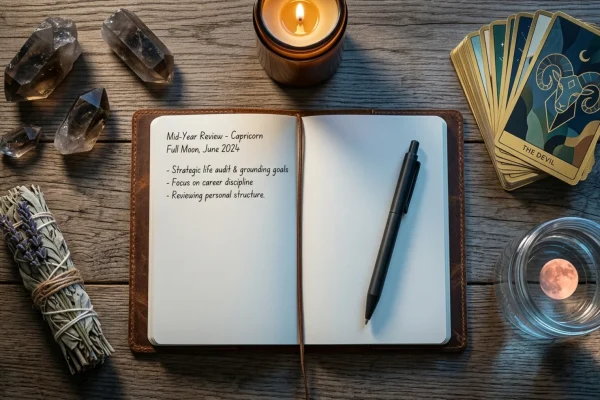 Mid-Year Review - Capricorn
Full Moon, June 2024
- Strategic life audit & grounding goals
- Focus on career discipline
- Reviewing personal structure.
THE DEVIL